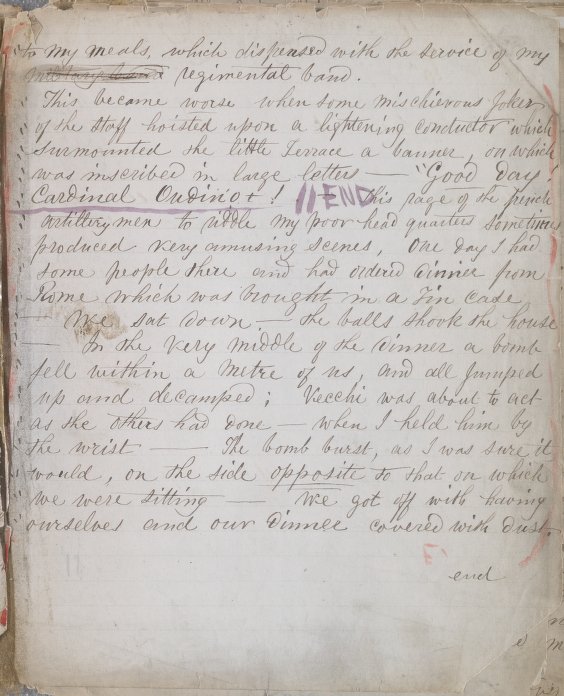 to my meals, which dispensed with the service of my
regimental band.
This became worse when some mischievous Joker
of the Staff hoisted upon a lightening conductor which
surmounted the little Terrace a banner, on which
was inscribed in large letters — "Good day
Cardinal Oudinot! //END this rage of the french
artillerymen to riddle my poor head quarters sometimes
produced very amusing scenes, One day I had
some people there and had ordered dinner from
Rome which was brought in a Tin case
We sat down — the balls shook the house
— In the very middle of the dinner a bomb
fell within a metre of us, and all jumped
up and decamped; Vecchi was about to act
as the others had done — when I held him by
the wrist — The bomb burst, as I was sure it
would, on the side opposite to that on which
we were sitting — We got off with having
ourselves and our dinner covered with dust.
end